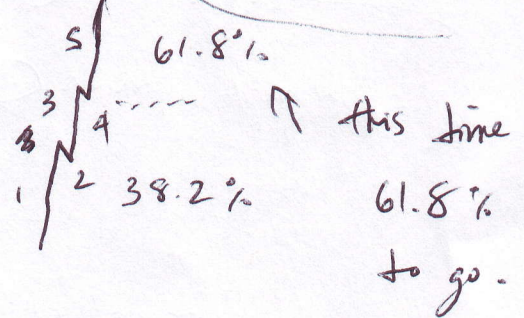 5 61.8%
3 4 this time
1 2 38.2% 61.8%
to go.